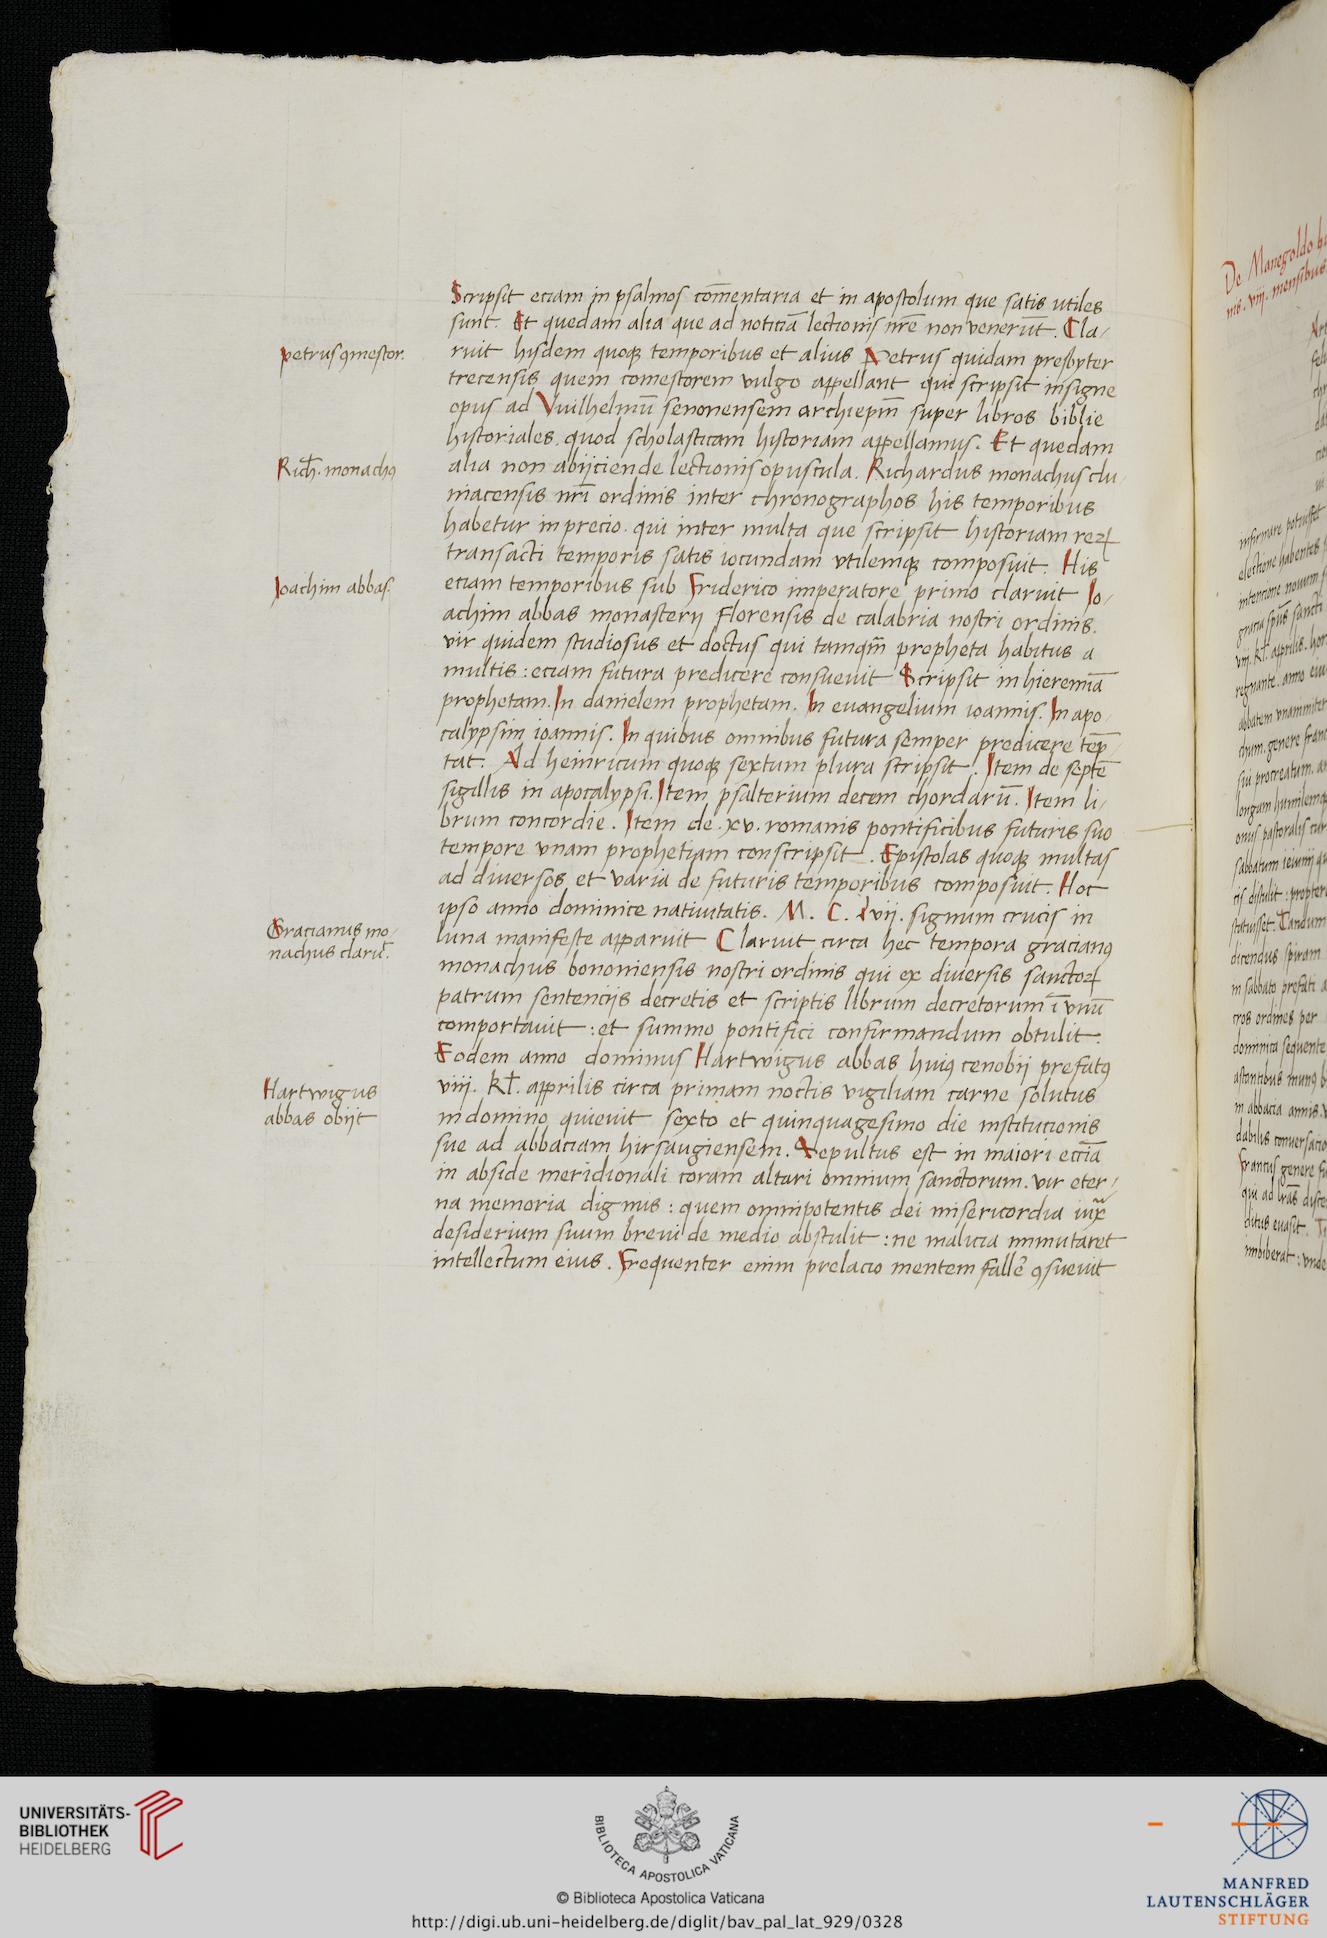 Scripsit eciam in psalmos com̄entaria et in apostolum que satis utiles
sunt. Et quedam alia que ad noticiā lectionis nr̄e non venerūt. Cla-
ruit hisdem quoqꝫ temporibus et alius Petrus quidam presbyter
petrus ꝯmestor.
trecensis quem comestorem vulgo appellant qui scripsit insigne
opus ad Vuilhelmū senonensem archiepm̄ super libros biblie
historiales. quod scholasticam historiam appellamus. Et quedam
alia non abijciende lectionis opuscula. Richardus monachus clu-
Rich̄. monachꝰ
niacensis nr̄i ordinis inter chronographos his temporibus
habetur in precio. qui inter multa que scripsit historiam reꝝ
transacti temporis satis iocundam vtilemqꝫ composuit. His
eciam temporibus sub Friderico imperatore primo claruit Io-
Ioachim abbas.
achim abbas monasterij Florensis de calabria nostri ordinis.
vir quidem studiosus et doctus qui tamqm̄ propheta habitus a
multis: eciam futura predicere consueuit Scripsit in hieremiā
prophetam. In danielem prophetam. In evangelium ioannis. In apo-
calypsim ioannis. In quibus omnibus futura semper predicere tēp-
tat. Ad heinricum quoqꝫ sextum plura scripsit. Item de septē
sigillis in apocalypsi. Item psalterium decem chordarū. Item li-
brum concordie. Item de .xv. romanis pontificibus futuris suo
tempore vnam prophetiam conscripsit. Epistolas quoqꝫ multas
ad diversos et varia de futuris temporibus composuit. Hoc
ipso anno dominice natiuitatis. M. C. lvii. signum crucis in
luna manifeste apparuit Claruit circa hec tempora gracianꝰ
Gracianus mo-
nachus clarū.
monachus bononiensis nostri ordinis qui ex diversis sanctoꝝ
patrum sentencijs decretis et scriptis librum decretorum ī vnū
comportauit: et summo pontifici confirmandum obtulit.
Eodem anno dominus Hartwigus abbas huiꝰ cenobij prefatꝰ
Hartwigus
abbas obijt
viii. Kl̄. apprilis circa primam noctis vigiliam carne solutus
in domino quieuit sexto et quinquagesimo die institucionis
sue ad abbaciam hirsaugiensem. Sepultus est in maiori eccīa
in abside meridionali coram altari omnium sanctorum. vir eter-
na memoria dignus: quem omnipotentis dei misericordia iuxͣ
desiderium suum breui de medio abstulit: ne malicia immutaret
intellectum eius. Frequenter enim prelacio mentem fallē ꝯsueuit
De Manegoldo
UNIVERSITÄTS-
BIBLIOTHEK
HEIDELBERG
BIBLIOTECA APOSTOLICA VATICANA
© Biblioteca Apostolica Vaticana
http://digi.ub.uni-heidelberg.de/diglit/bav_pal_lat_929/0328
MANFRED
LAUTENSCHLÄGER
STIFTUNG